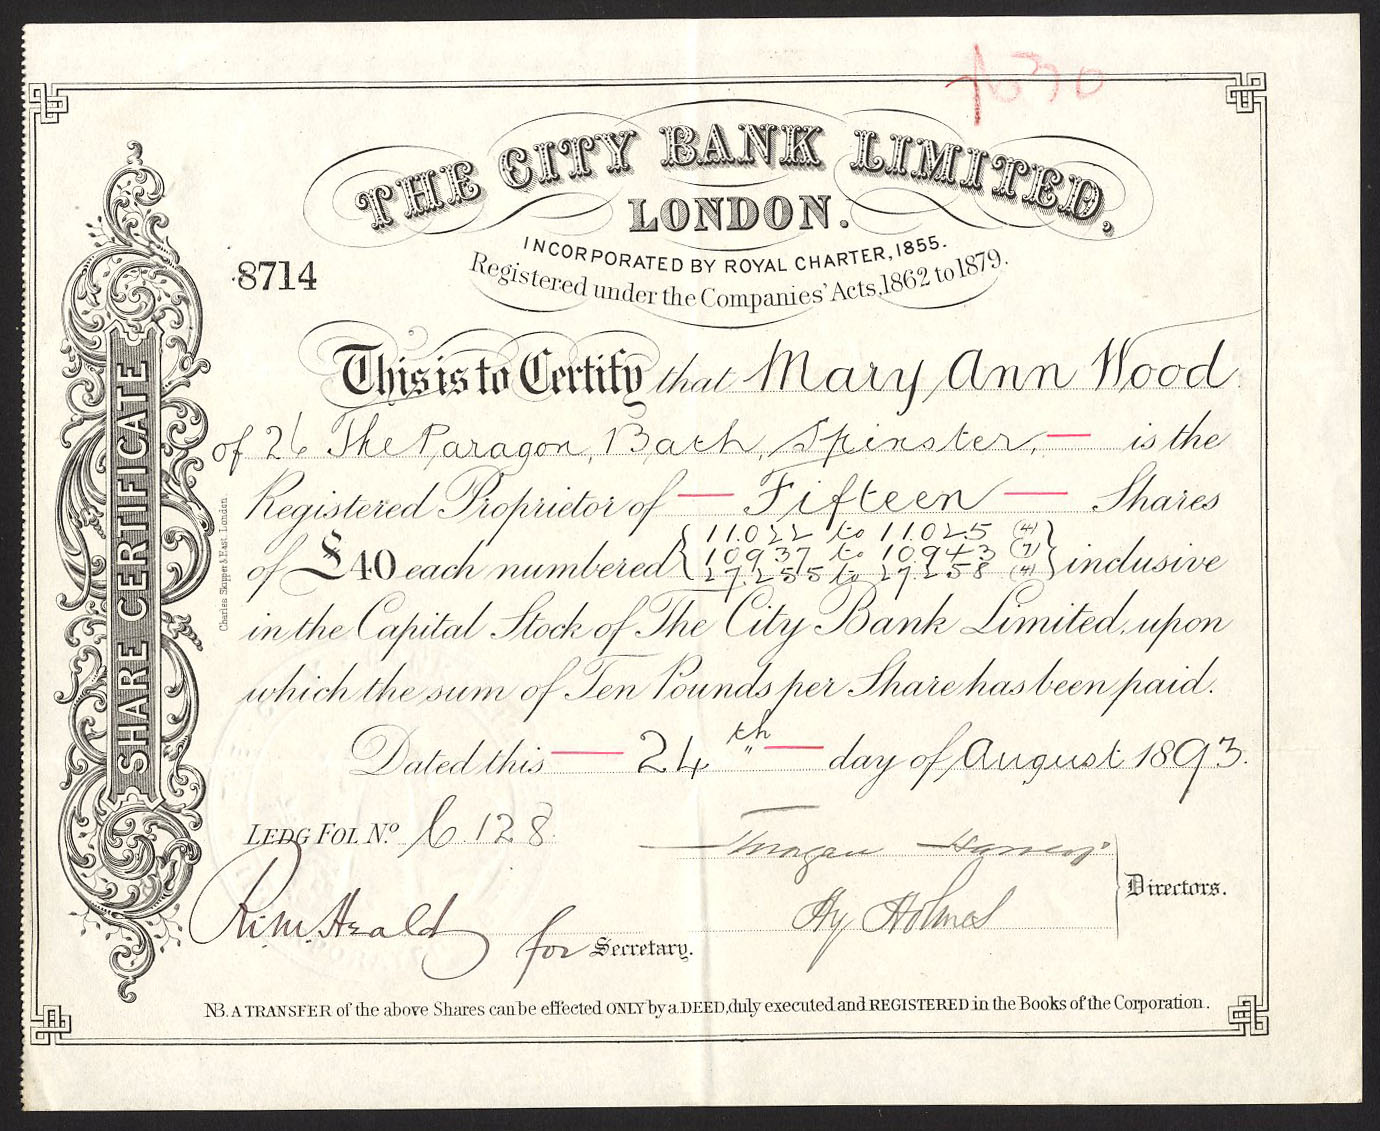 THE CITY BANK LIMITED,
LONDON.
INCORPORATED BY ROYAL CHARTER, 1855.
Registered under the Companies' Acts, 1862 to 1879.
8714
SHARE CERTIFICATE
Charles Skipper & East, London
This is to Certify that Mary Ann Wood
of 26 The Paragon, Bath, Spinster, — is the
Registered Proprietor of — Fifteen — Shares
of £40 each numbered { 11.022 to 11.025 (4)
10937 to 10943 (7)
27.255 to 27.258 (4) } inclusive
in the Capital Stock of The City Bank Limited, upon
which the sum of Ten Pounds per Share has been paid.
Dated this — 24th — day of August 1893.
LEDG FOL No. 128
Directors.
Hy Holmes
R.M. Heald for Secretary.
NB. A TRANSFER of the above Shares can be effected ONLY by a DEED, duly executed and REGISTERED in the Books of the Corporation.